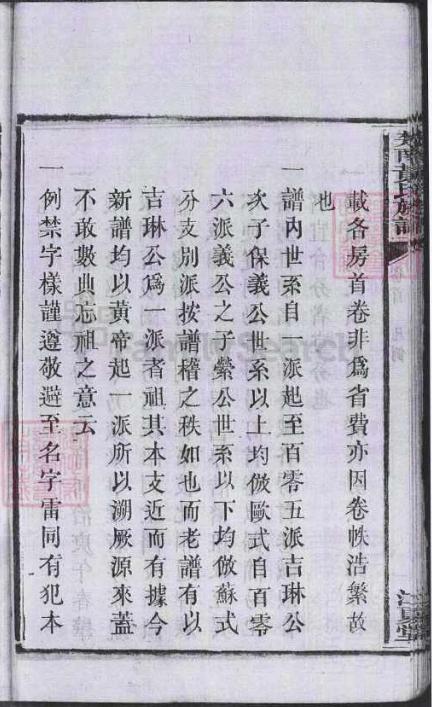 載各房首卷非爲省費亦因卷帙浩繁故
也
一譜內世系自一派起至百零五派吉琳公
次子保義公世系以上均倣歐式自百零
六派義公之子縈公世系以下均倣蘇式
分支別派按譜稽之秩如也而老譜有以
吉琳公爲一派者祖其本支近而有據今
新譜均以黃帝起一派所以溯厥源來蓋
不敢數典忘祖之意云
一例禁字樣謹遵敬避至名字雷同有犯本